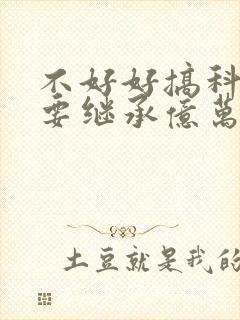 不好好搞科
要继承億萬
土豆就是我的